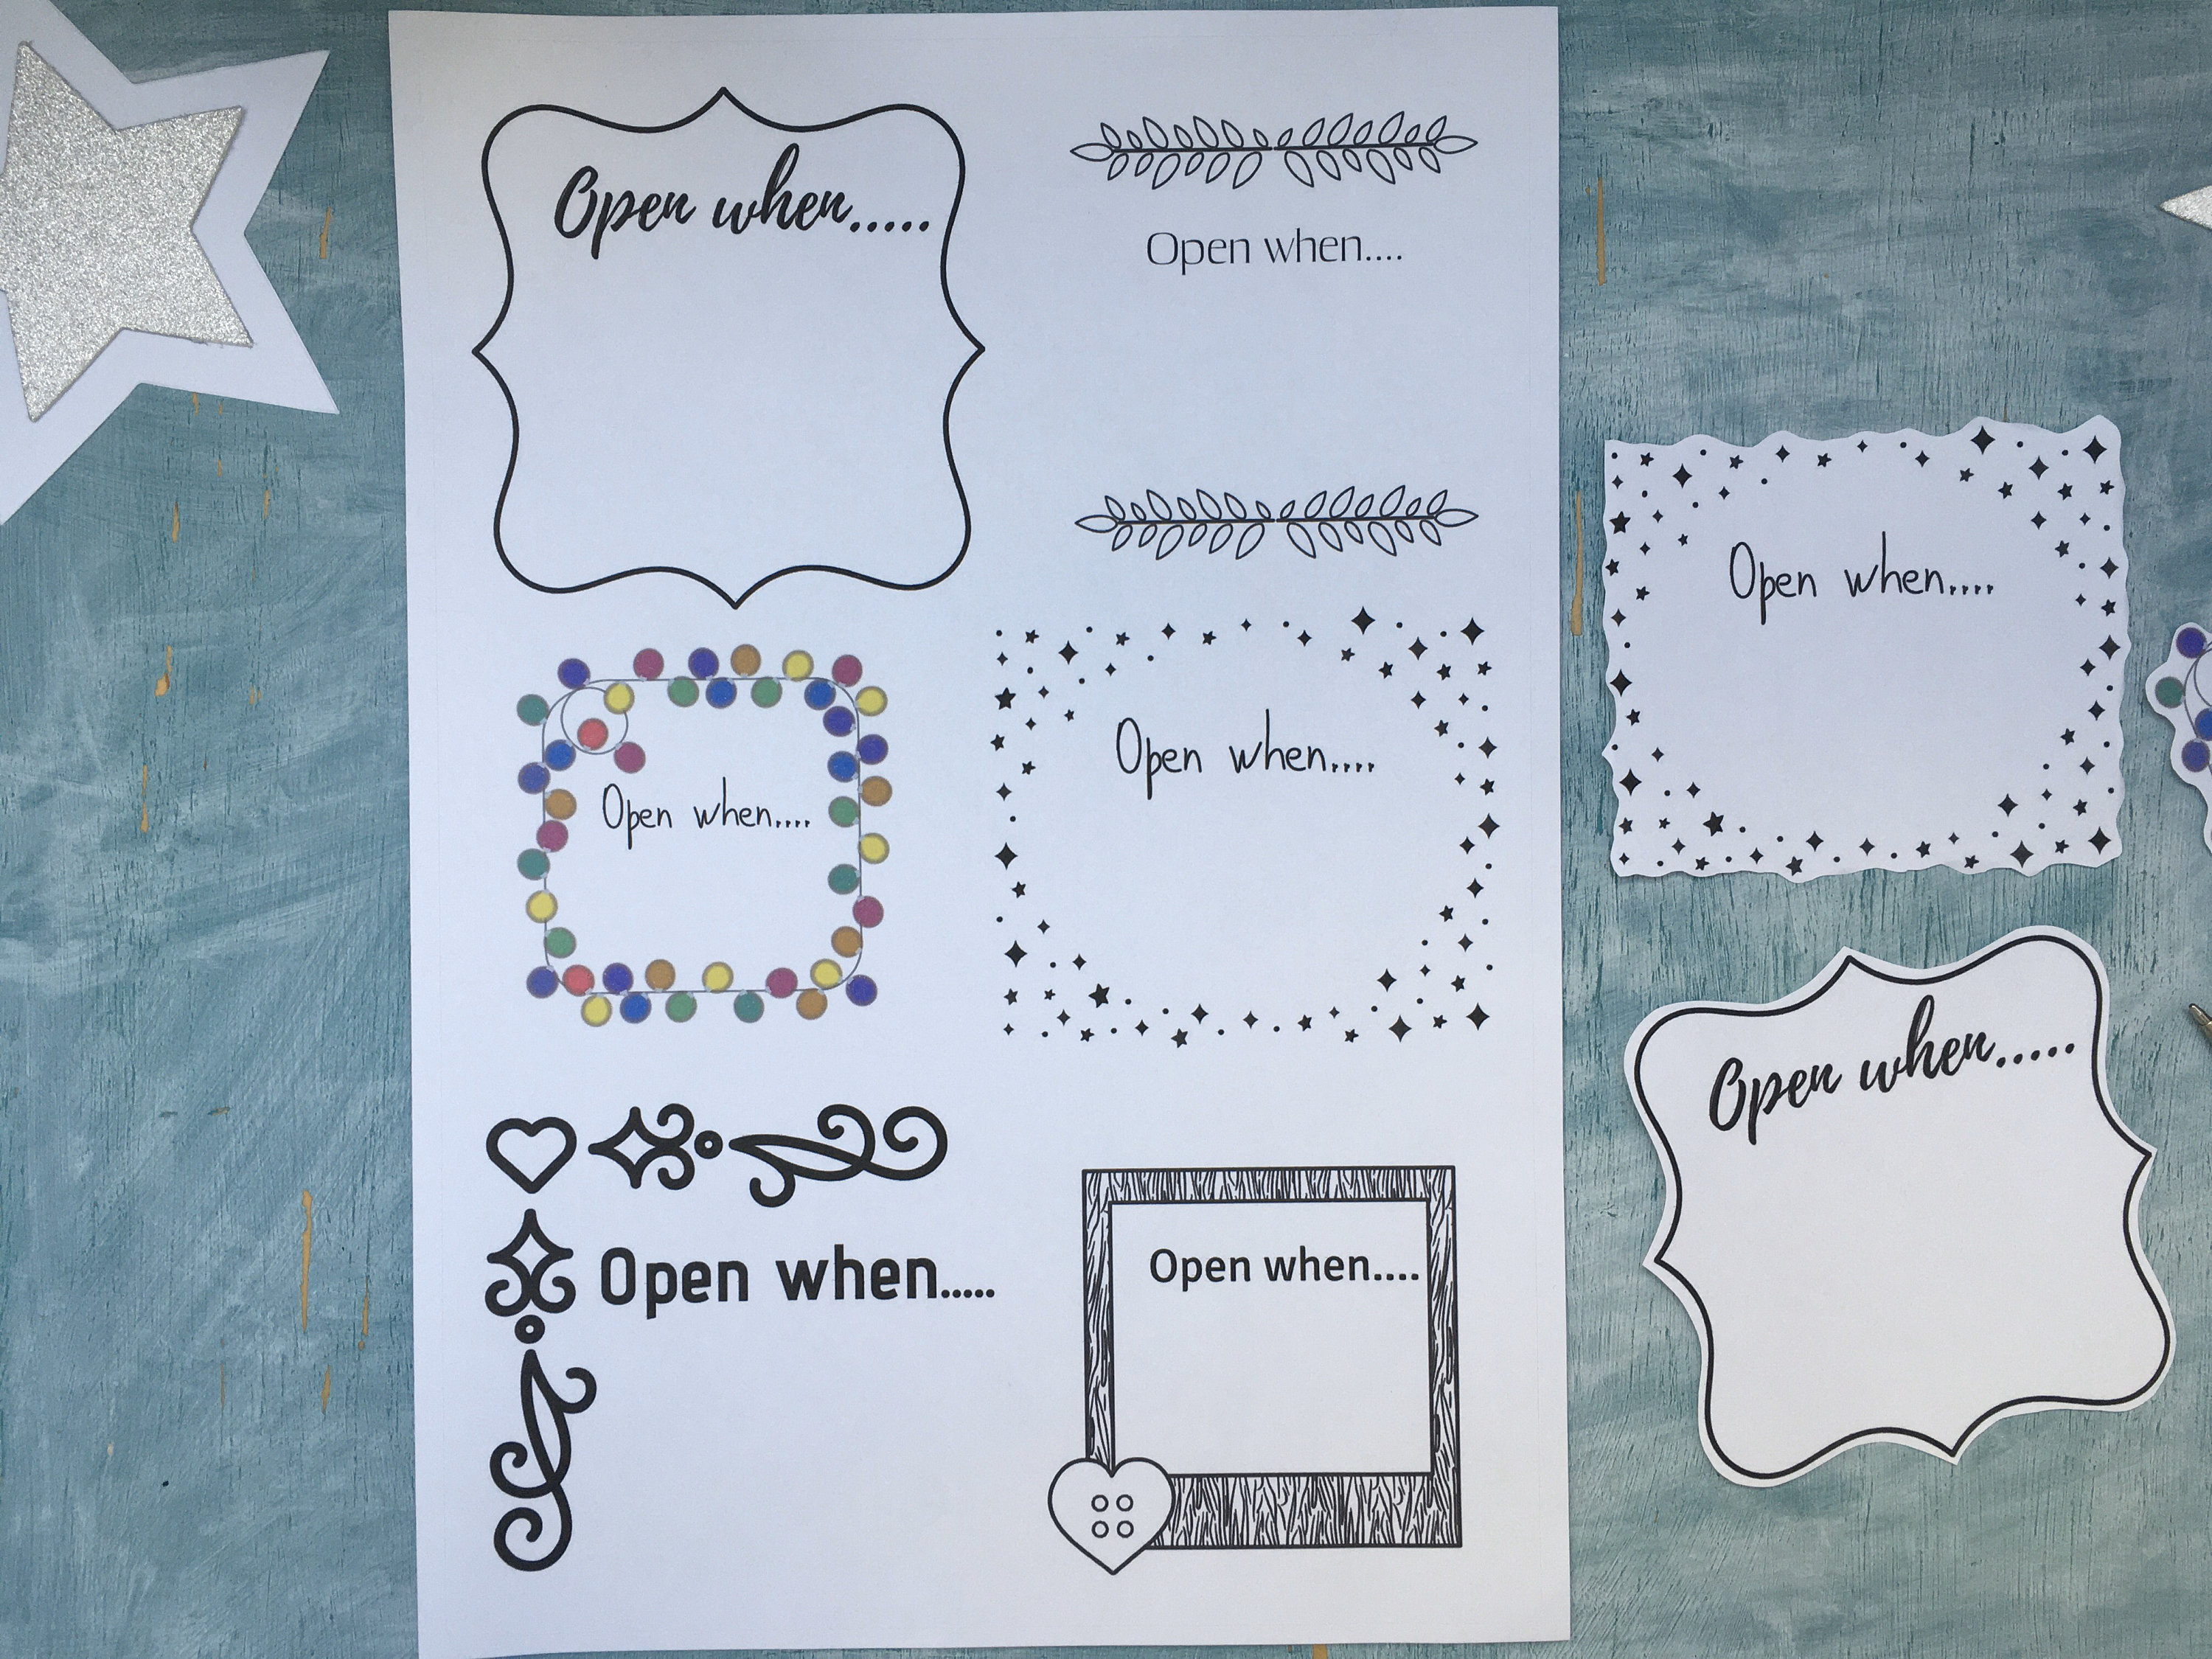 Open when.....
Open when....
Open when....
Open when....
Open when.....
Open when....
Open when....
Open when.....